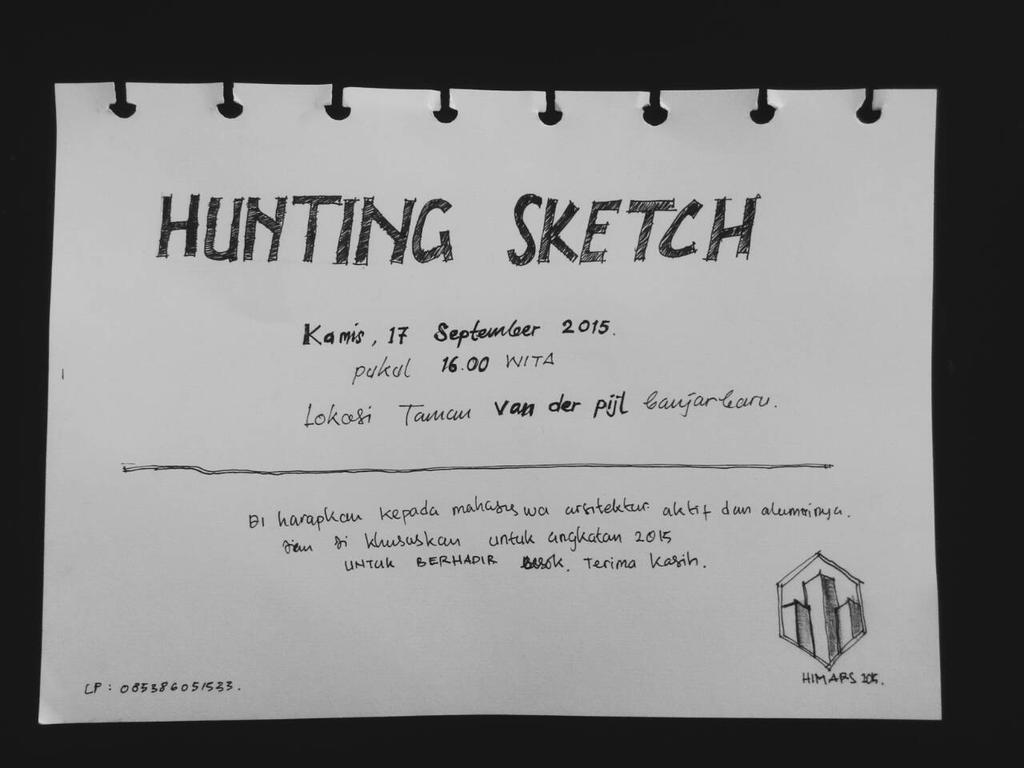 HUNTING SKETCH
Kamis, 17 September 2015.
pukul 16.00 WITA
Lokasi Taman van der pijl banjarbaru.
DI harapkan kepada mahasiswa arsitektur aktif dan alumninya.
dan di khususkan untuk angkatan 2015
UNTUK BERHADIR besok. Terima kasih.
HIMARS 2015.
CP : 085386051533.